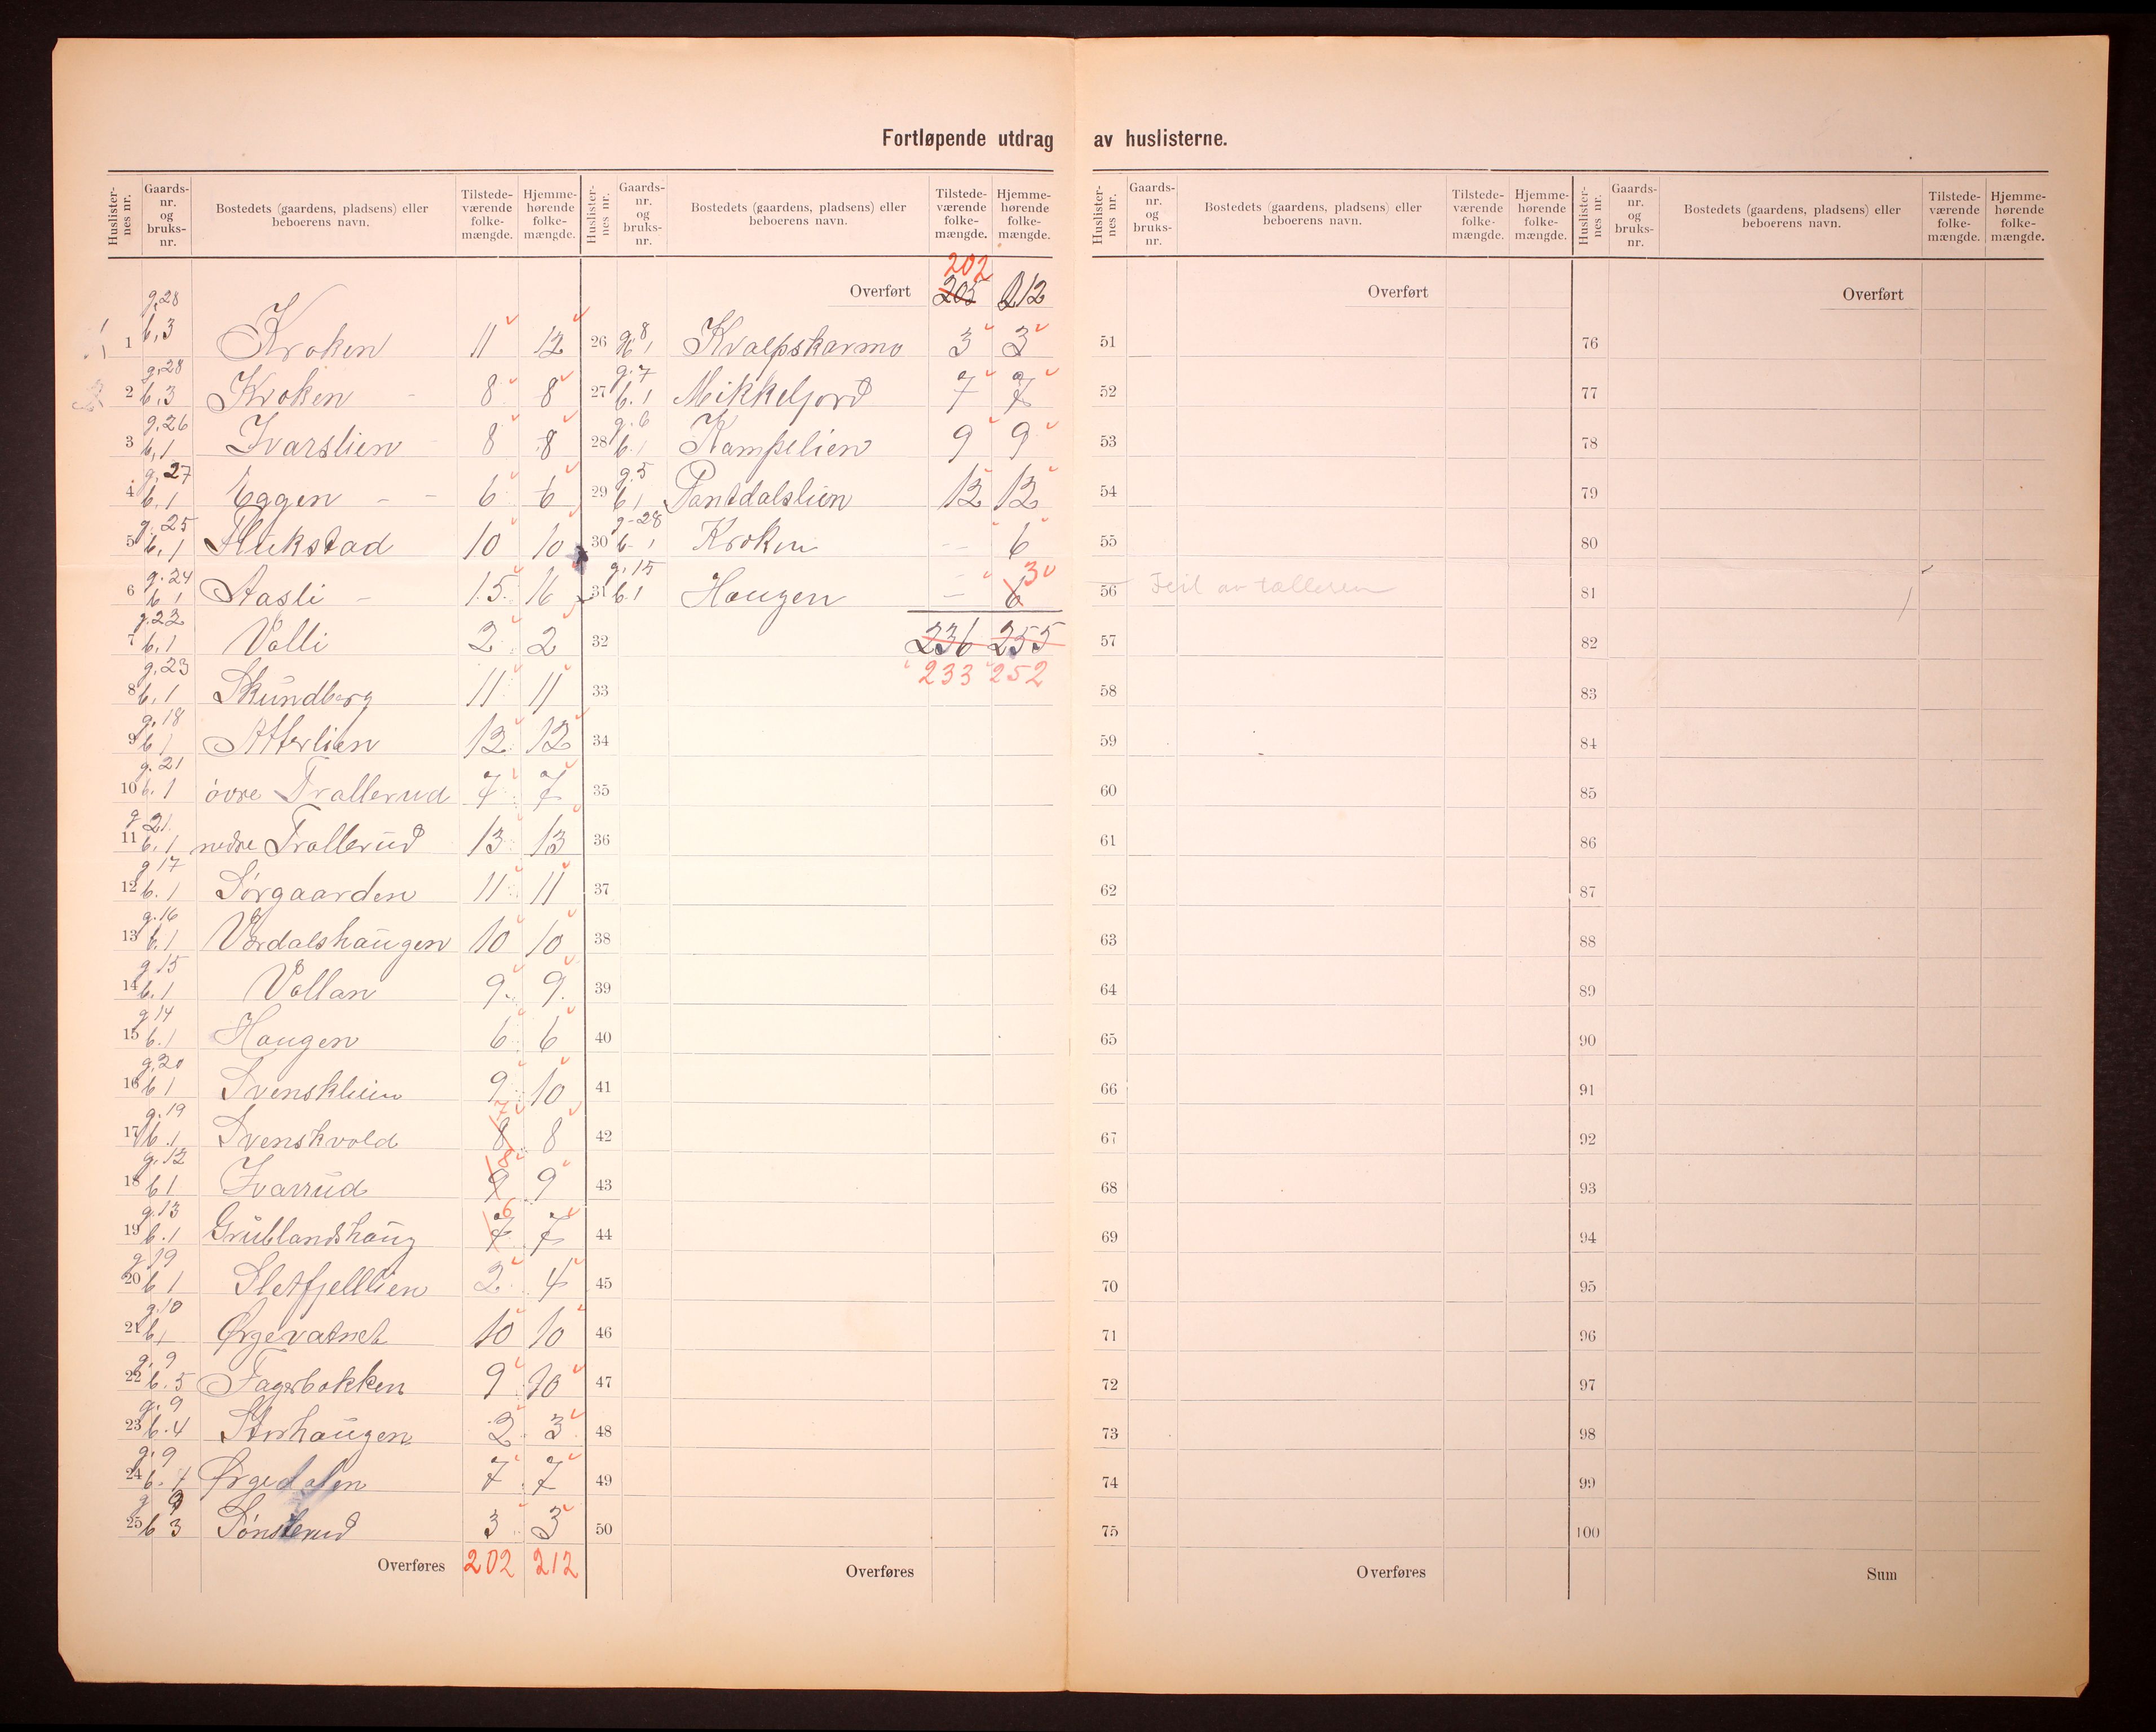 Fortløpende utdrag av huslisterne.
Huslisternes nr. Gaards-nr. og bruks-nr. Bostedets (gaardens, pladsens) eller beboerens navn. Tilstede-værende folke-mængde. Hjemme-hørende folke-mængde.
1 g.28 b.3 Kroken 11 12
2 g.28 b.3 Kroken - 8 8
3 g.26 b.1 Ivarslien 8 8
4 g.27 b.1 Eggen - - 6 6
5 g.25 b.1 Flukstad 10 10
6 g.24 b 1 Aasli - 15 16
7 g.22 b.1 Valli 2 2
8 g.23 b.1 Skundberg 11 11
9 g.18 b 1 Atterlien 12 12
10 g.21 b.1 övre Trallerud 7 7
11 g 21. b.1 nedre Trallerud 13 13
12 g 17 b.1 Sörgaarden 11 11
13 g.16 b.1 Vardalshaugen 10 10
14 g 15 b.1 Vollan 9 9
15 g 14 b.1 Haugen 6 6
16 g.20 b 1 Svensklien 9 10
17 g.19 b.1 Svenskvold 8 7 8
18 g.12 b 1 Ivarrud 9 8 9
19 g.13 b.1 Grublandshaug 7 6 7
20 g 19 b 1 Sletfjelllien 2 4
21 g.10 b, Ørgevatnet 10 10
22 g. 9 b.5 Fagerbakken 9 10
23 g. 9 b.4 Storhaugen 2 3
24 g. 9 b.1 Ørgedalen 7 7
25 g 9 b 3 Tönsterud 3 3
Overføres 202 212
Huslisternes nr. Gaards-nr. og bruks-nr. Bostedets (gaardens, pladsens) eller beboerens navn. Tilstede-værende folke-mængde. Hjemme-hørende folke-mængde.
202
Overført 205 212
26 g. 8 b. 1 Kvalpskarmo 3 3
27 g. 7 b.1 Mikkeljord 7 7
28 g. 6 b.1 Kampelien 9 9
29 g.5 b 1 Pantdalslien 12 12
30 g-28 b 1 Kroken - 6
31 g.15 b.1 Haugen - 6 3
32 236 255
233 252
33
34
35
36
37
38
39
40
41
42
43
44
45
46
47
48
49
50
Overføres
Huslisternes nr. Gaards-nr. og bruks-nr. Bostedets (gaardens, pladsens) eller beboerens navn. Tilstede-værende folke-mængde. Hjemme-hørende folke-mængde.
Overført
51
52
53
54
55
56 Feil av tælleren
57
58
59
60
61
62
63
64
65
66
67
68
69
70
71
72
73
74
75
Overføres
Huslisternes nr. Gaards-nr. og bruks-nr. Bostedets (gaardens, pladsens) eller beboerens navn. Tilstede-værende folke-mængde. Hjemme-hørende folke-mængde.
Overført
76
77
78
79
80
81
82
83
84
85
86
87
88
89
90
91
92
93
94
95
96
97
98
99
100
Sum